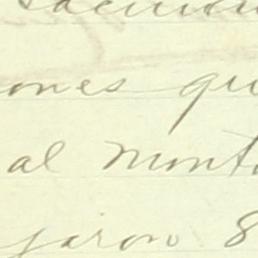 ones qu
al mont
jaron 8